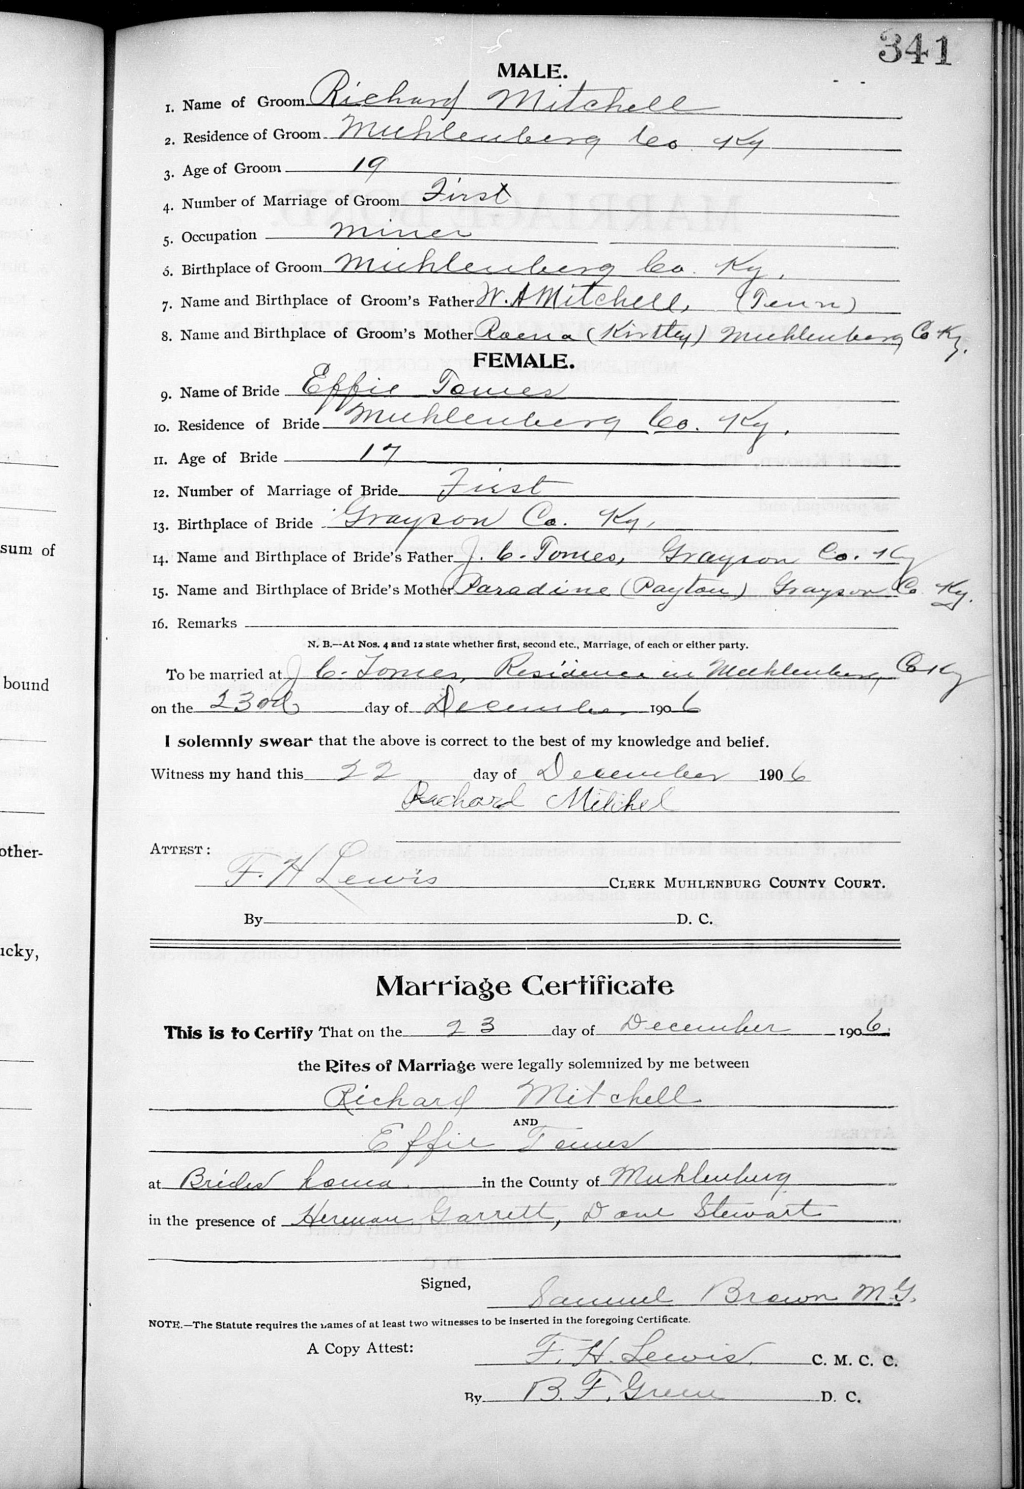 341
MALE.
1. Name of Groom Richard Mitchell
2. Residence of Groom Muhlenberg Co. Ky
3. Age of Groom 19
4. Number of Marriage of Groom First
5. Occupation miner
6. Birthplace of Groom Muhlenberg Co. Ky.
7. Name and Birthplace of Groom's Father W. A Mitchell, (Tenn)
8. Name and Birthplace of Groom's Mother Roena (Kirtley) Muhlenberg Co Ky.
FEMALE.
9. Name of Bride Effie Tomes
10. Residence of Bride Muhlenberg Co. Ky.
11. Age of Bride 17
12. Number of Marriage of Bride First
13. Birthplace of Bride Grayson Co. Ky.
14. Name and Birthplace of Bride's Father J. C. Tomes, Grayson Co. Ky
15. Name and Birthplace of Bride's Mother Paradine (Payton) Grayson Co. Ky.
16. Remarks
N. B.—At Nos. 4 and 12 state whether first, second etc., Marriage, of each or either party.
sum of
To be married at J C. Tomes, Residence in Muhlenberg Co Ky
bound
on the 23rd day of December 1906
I solemnly swear that the above is correct to the best of my knowledge and belief.
Witness my hand this 22 day of December 1906
Richard Mitchel
other-
ATTEST:
F. H Lewis CLERK MUHLENBURG COUNTY COURT.
By D. C.
ucky,
Marriage Certificate
This is to Certify That on the 23 day of December 1906.
the Rites of Marriage were legally solemnized by me between
Richard Mitchell
AND
Effie Tomes
at Brides home in the County of Muhlenburg
in the presence of Herman Garrett, Dave Stewart
Signed,
Samuel Brown M.G.
NOTE.—The Statute requires the names of at least two witnesses to be inserted in the foregoing Certificate.
A Copy Attest:
F. H. Lewis C. M. C. C.
By B. F. Green D. C.